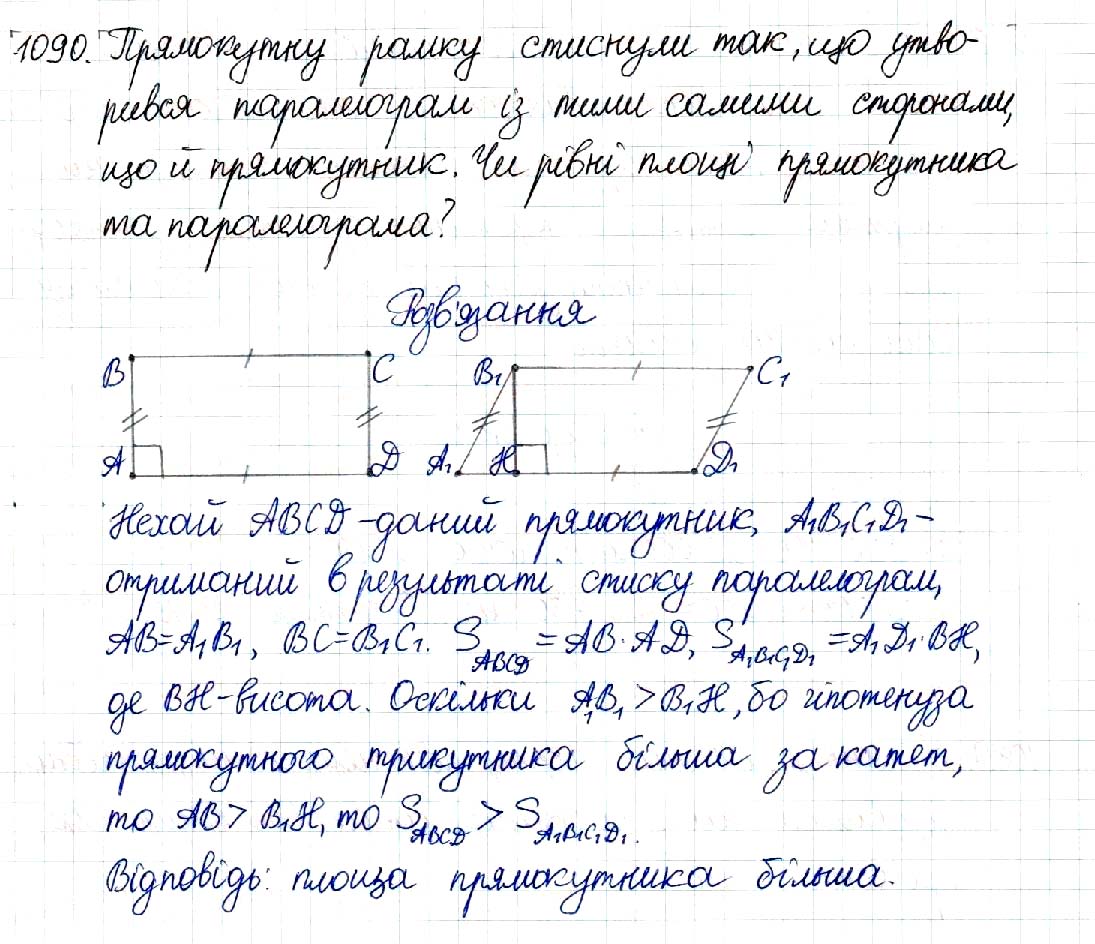 1090. Прямокутну рамку стиснули так, що утво-
рився паралелограм із тими самими сторонами,
що й прямокутник. Чи рівні площі прямокутника
та паралелограма?
Розв'язання
B C B₁ C₁
A D A₁ H D₁
Нехай ABCD – даний прямокутник, A₁B₁C₁D₁ –
отриманий в результаті стиску паралелограм,
AB=A₁B₁, BC=B₁C₁. S ABCD = AB·AD, S A₁B₁C₁D₁ = A₁D₁·BH,
де BH – висота. Оскільки A₁B₁ > B₁H, бо гіпотенуза
прямокутного трикутника більша за катет,
то AB > B₁H, то S ABCD > S A₁B₁C₁D₁.
Відповідь: площа прямокутника більша.